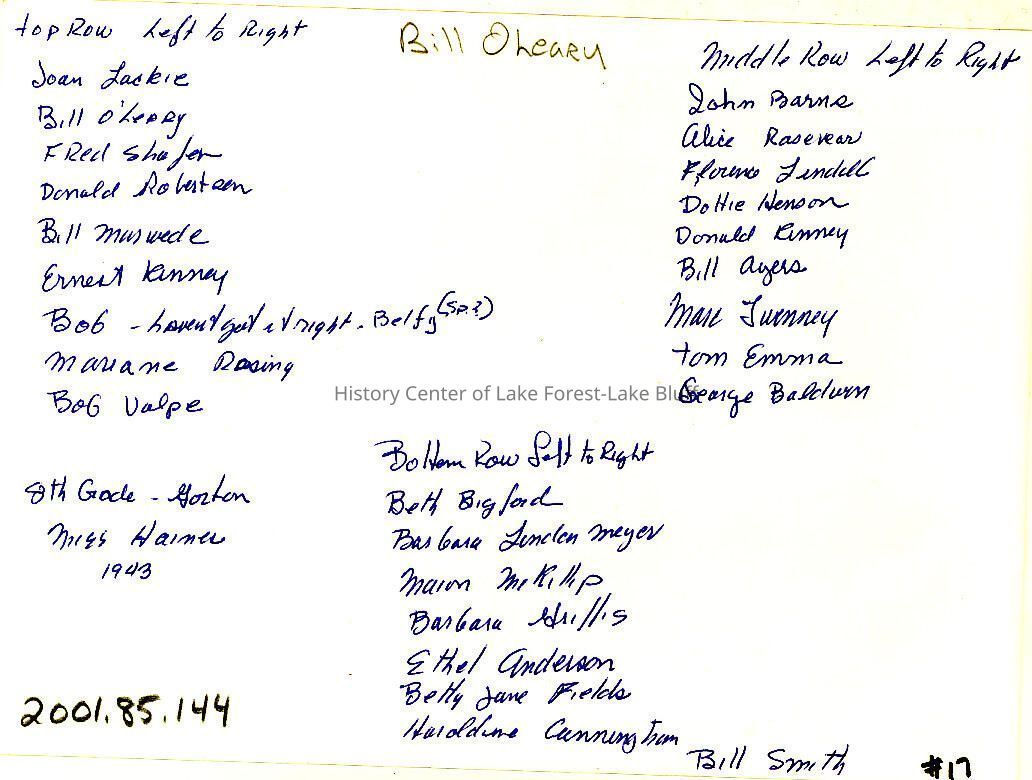 Bill O'Leary
top Row Left to Right
Joan Lackie
Bill O'Leary
FRed Shafer
Donald Robertson
Bill Muswede
Ernest Kinney
Bob - havent got it right - Belfy (Sp.?)
Mariane Rosing
Bob Valpe
8th Grade - Gorton
Miss Haines
1943
2001.85.144
Middle Row Left to Right
John Barns
Alice Rasevear
Florence Lindell
Dottie Henson
Donald Kinney
Bill Ayers
Marc Twnney
tom Emma
George Baldwin
History Center of Lake Forest-Lake Bluff
Bottom Row Left to Right
Beth Bigford
Barbara Linden meyer
Marion McKillip
Barbara Griffis
Ethel Anderson
Betty Jane Fields
Haroldine Cunningham
Bill Smith
#17